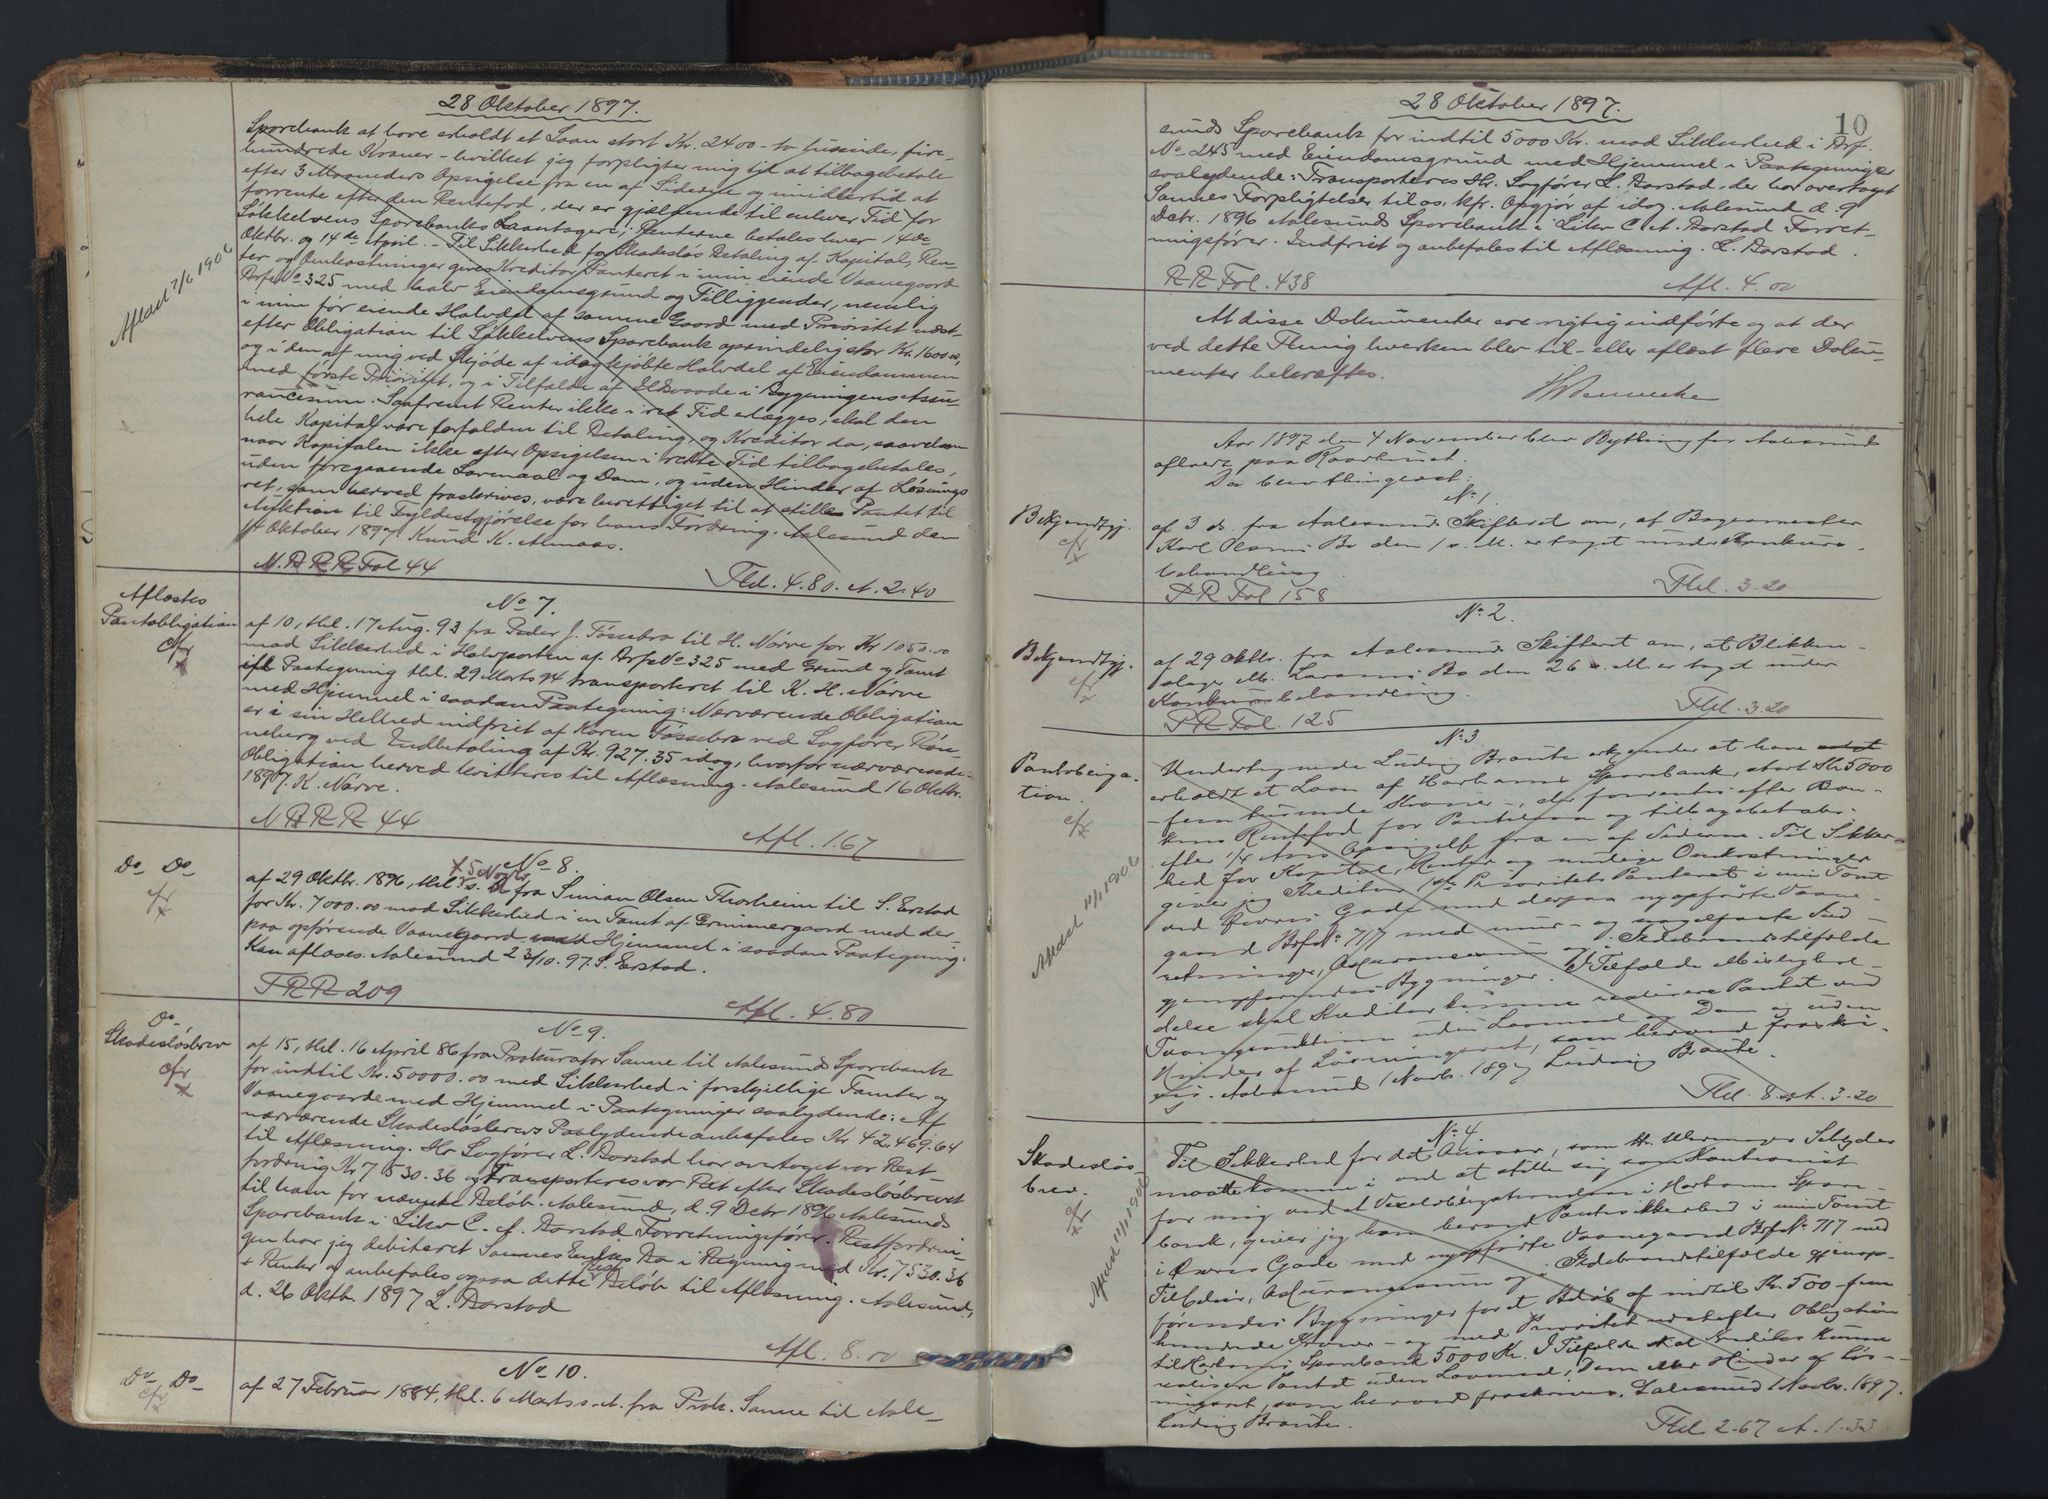 28 Oktober 1897.
Sparebank at have erholdt et Laan stort Kr. 2400 - to tusinde, fire-
hundrede Kroner - hvilket jeg forpligter mig til at tilbagebetale
efter 3 Maaneders Opsigelse fra en af Siderne og imidlertid at
forrente efter den Rentefod, der er gjældende til enhver Tid for
Søkkelvens Sparebanks Laantagere; Renterne betales hver 14de
Oktbr. og 14de April. - Til Sikkerhed for skadesløs Betaling af Kapital, Ren-
ter og Omkostninger gives Kreditor Panteret i min eiende Vaanegaard
Brf. No 325 med halv Eiendomsgrund og Tilliggender, nemlig
i min før eiende Halvdel af samme Gaard med Prioritet næst
efter Obligation til Søkkelvens Sparebank oprindelig stor Kr. 1600.00,
og i den af mig ved Skjøde af idag kjøbte Halvdel af Eiendommen
med første Prioritet, og i Tilfælde af Ildsvaade i Bygningens Assu-
rancesum. Saafremt Renter ikke i ret Tid erlægges, skal den
hele Kapital være forfalden til Betaling, og Kreditor da, saavelsom
naar Kapitalen ikke efter Opsigelsen i rette Tid tilbagebetales,
uden foregaaende Lovmaal og Dom, og uden Hinder af Løsnings
ret, som herved fraskrives, være berettiget til at stille Pantet til
Auktion til Fyldestgjørelse for hans Fordring. Aalesund den
Oktober 1897. Knud K. Almaas.
N. B R R Fol 44
Thl. 4.80. A. 2.40
Aflæst 7/6 1906
Aflæstes
Pantobligation
cfr
No 7.
af 10, thl. 17 Aug. 93 fra Peder J. Fossebro til H. Nørve for Kr 1050.00
mod Sikkerhed i Halvparten af Brf No 325 med Grund og Tomt
ifl Paategning thl. 29 Marts 94 transporteret til K. H. Nørve
med Hjemmel i saadan Paategning: Nærværende Obligation
er i sin Helhed indfriet af Karen Fossebro ved Sagfører Røn-
neberg ved Indbetaling af Kr. 927.35 idag, hvorfor nærværende
Obligation herved kvitteres til Aflæsning. Aalesund 16 Oktbr.
1897. K. Nørve.
N B R R 44
Afl. 1.67
Do Do
cfr
No 8.
5 Novbr
af 29 Oktbr. 1896, thl s. D fra Simon Olsen Thorheim til S. Erstad
for Kr. 7000.00 mod Sikkerhed i en Tomt af Grimmergaard med der-
paa opførende Vaanegaard med Hjemmel i saadan Paategning:
Kan aflæses. Aalesund 23/10. 97. S. Erstad.
T R R 209
Afl. 4.80
Do
Skadesløsbrev
cfr
No 9.
af 15, thl. 16 April 86 fra Prokurator Sanne til Aalesund Sparebank
for indtil Kr. 50000.00 med Sikkerhed i forskjellige Tomter og
Vaanegaarde med Hjemmel i Paategninger saalydende: Af
nærværende Skadesløsbrevs Paalydende anbefales Kr 42,469.64
til Aflæsning. Hr Sagfører L. Aarstad har overtaget vor Rest-
fordring Kr 7530.36 og Transporteres vor Ret efter Skadesløsbrevet
til ham for nævnte Beløb. Aalesund, d. 9 Decbr 1896 Aalesunds
Sparebank i Likv C. A. Aarstad Forretningsfører. Restfordrin-
gen har jeg debiteret Sannes Enkes Bo i Regning med Kr. 7530.36
+ Renter og anbefales ogsaa dette Rest Beløb til Aflæsning. Aalesund,
d. 26 Oktb. 1897 L. Aarstad
Afl. 8.00
Do Do
cfr
No 10.
af 27 Februar 1884, thl. 6 Marts s. A. fra Prok. Sanne til Aale-
28 Oktober 1897.
10
sunds Sparebank for indtil 5000 Kr. mod Sikkerhed i Brf.
No 245 med Eiendomsgrund med Hjemmel i Paategninger
saalydende: Transporteres Hr. Sagfører L. Aarstad, der har overtaget
Sannes Forpligtelser til os, kfr. Opgjør af idag. Aalesund d. 9
Dcbr. 1896 Aalesunds Sparebank i Likv C. A. Aarstad Forret-
ningsfører. Indfriet og anbefales til Aflæsning. L. Aarstad.
R R Fol. 438
Afl. 4.00
At disse Dokumenter ere rigtig indførte og at der
ved dette Thing hverken blev til- eller aflæst flere Doku-
menter bekræftes.
Aar 1897 den 4 November blev Bything for Aalesund
afholdt paa Raadhuset.
Da blev thinglæst:
No 1.
Bekjendtgj.
cfr
af 3 ds. fra Aalesunds Skifteret om, at Bagermester
Karl Olsens Bo den 1 s. M. er taget under Konkurs-
behandling
P R Fol 158
Thl. 3.20
No 2.
Bekjendtgj.
cfr
af 29 Oktbr. fra Aalesunds Skifteret om, at Blikken-
slager M. Larsens Bo den 26 s. M. er tagt under
Konkursbehandling.
P R Fol. 125
Thl. 3.20
No 3
Pantobliga-
tion.
cfr
Undertegnede Ludvig Braute erkjender at have
erholdt et Laan af Harhams Sparebank, stort Kr 5000
- fem tusinde Kroner -, der forrentes efter Ban-
kens Rentefod for Pantelaan og tilbagebetales
efter 1/4 Aars Opsigelse fra en af Siderne. Til Sikker-
hed for Kapital, Renter og mulige Omkostninger
giver jeg Kreditor 1ste Prioritets Panteret i min Tomt
ved Øvris Gade med derpaa nyopførte Vaane-
gaard Brf No 717 med mur- og nagelfaste Ind-
retninger, Assurancesum og i Ildebrandstilfælde
gjenopførendes Bygninger. I Tilfælde Misligehol-
delse skal Kreditor kunne realisere Pantet ved
Tvangsauktion uden Lovmaal og Dom og uden
Hinder af Løsningsret, som herved fraskri-
ves. Aalesund 1 Novb. 1897 Ludvig Braute.
Thl. 8 A. 3.20
Aflæst 11/1 1906
No 4.
Skadesløs-
brev.
cfr
Til Sikkerhed for det Ansvar, som Hr. Sebyder
maatte komme i ved at stille sig som Kautionist
for mig ved et Vexelobligationslaan i Harhams Spare-
bank, giver jeg ham herved Pantesikkerhed i min Tomt
i Øvris Gade med nyopførte Vaanegaard Brf No 717 med
Tilbehør, Assurancesum og i Ildebrandstilfælde gjenop-
førendes Bygninger for et Beløb af indtil Kr. 500 - fem
hundrede Kroner - og med Prioritet næstefter Obligation
til Harhams Sparebank 5000 Kr. I Tilfælde skal Kreditor kunne
realisere Pantet uden Lovmaal, Dom eller Hinder af Løs-
ningsret, som herved fraskrives. Aalesund 1 Novbr. 1897.
Ludvig Braute.
Thl 2.67 A. 1.33
Aflæst 11/1 1906